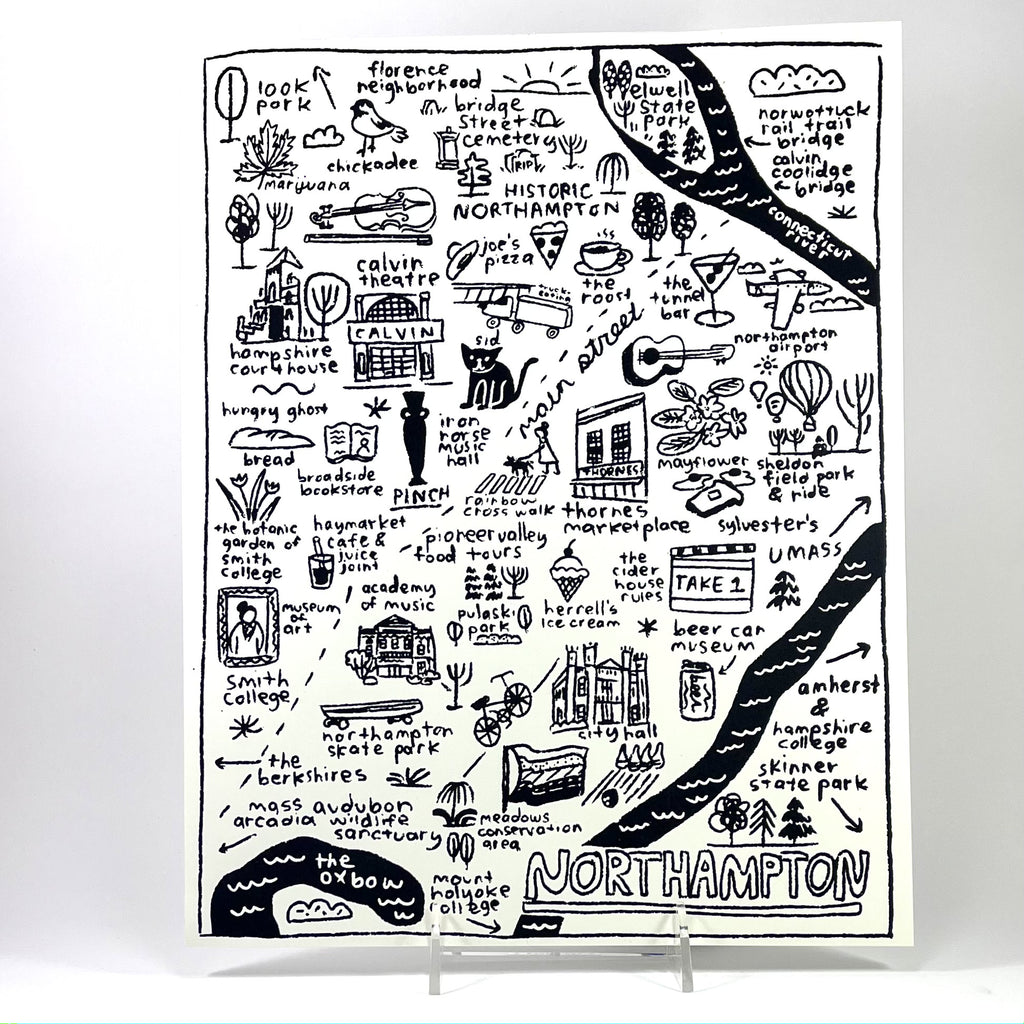 look
park
florence
neighborhood
chickadee
bridge
street
cemetery
TRIP
elwell
state
park
norwottuck
rail trail
bridge
calvin
coolidge
bridge
connecticut
river
marijuana
HISTORIC
NORTHAMPTON
joe's
pizza
the
roost
the
tunnel
bar
calvin
theatre
CALVIN
hampshire
courthouse
sid
main street
northampton
airport
hungry ghost
bread
broadside
bookstore
PINCH
iron
horse
music
hall
rainbow
cross walk
THORNES
thornes
marketplace
mayflower
sylvester's
sheldon
field park
& ride
UMASS
the botanic
garden of
smith
college
haymarket
cafe &
juice
joint
pioneer valley
food tours
museum
of
art
academy
of music
pulaski
park
herrell's
ice cream
the
cider
house
rules
TAKE 1
beer can
museum
beer
smith
college
northampton
skate park
city hall
amherst
&
hampshire
college
skinner
state park
the
berkshires
mass audubon
arcadia wildlife
sanctuary
meadows
conservation
area
the
oxbow
mount
holyoke
college
NORTHAMPTON